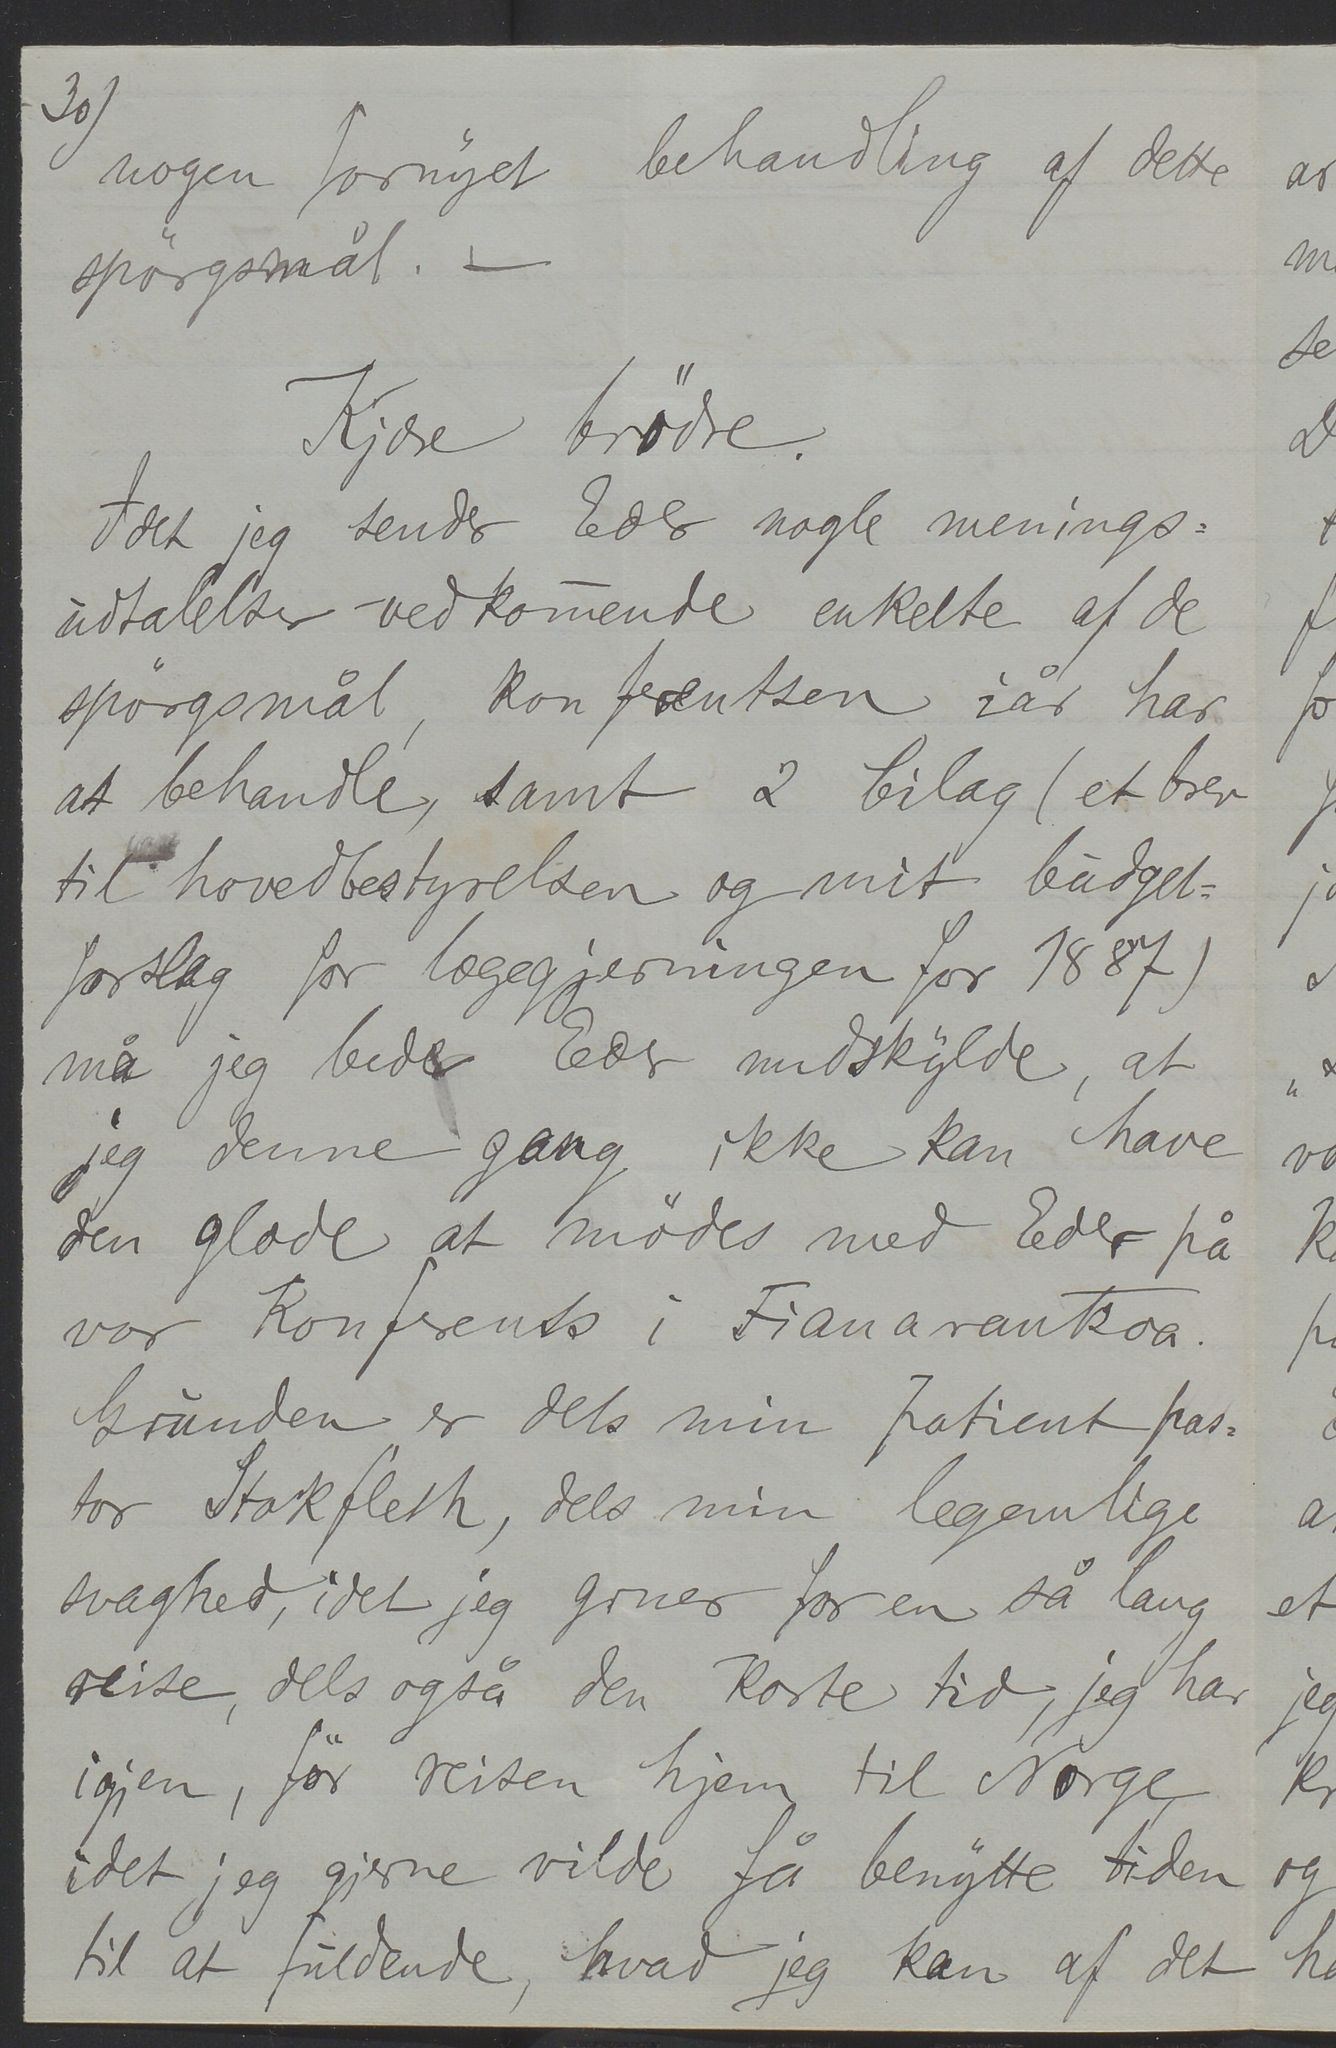 30)
nogen fornyet behandling af dette
spörgsmål. —
Kjære brödre.
Idet jeg sender Eder nogle menings=
udtalelser vedkom̄ende enkelte af de
spörgsmål, konferentsen iår har
at behandle, samt 2 bilag (et brev
til hovedbestyrelsen og mit budget=
forslag for lægegjerningen for 1887)
må jeg bede Eder undskylde, at
jeg denne gang ikke kan have
den glæde at mödes med Eder på
vor Konferents i Fianarantsoa.
Grunden er dels min patient pas=
tor Stokfleth, dels min legemlige
svaghed, idet jeg gruer for en så lang
reise, dels også den korte tid, jeg har
igjen, för reisen hjem til Norge
idet jeg gjerne vilde få benytte tiden
til at fuldende, hvad jeg kan af det